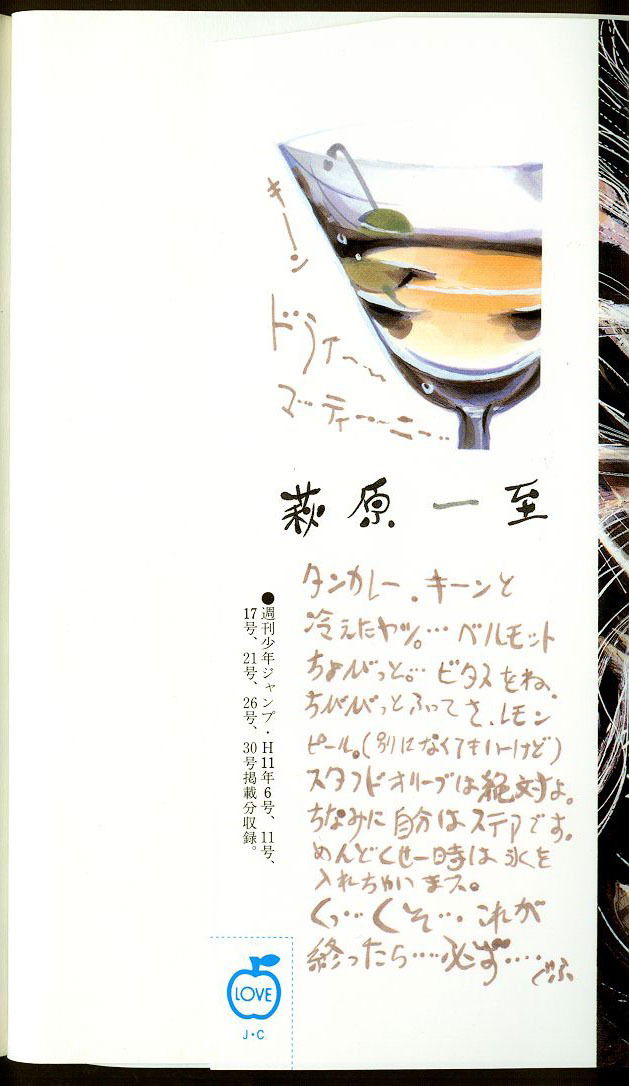 キーン
ドライ〜〜
マティ〜〜ニー…
萩原 一至
タンカレー。キーンと
冷えたヤツ。… ベルモット
ちょびっと。… ビタスをね、
ちびびっとふってさ、レモン
ピール。(別になくてもいーけど)
スタフドオリーブは絶対よ。
ちなみに自分はステアです。
めんどくせー時は氷を
入れちゃいます。
くっ…くそ…これが
終ったら……必ず……
ぐふ
●週刊少年ジャンプ・H11年6号、11号、
17号、21号、26号、30号掲載分収録。
LOVE
J・C